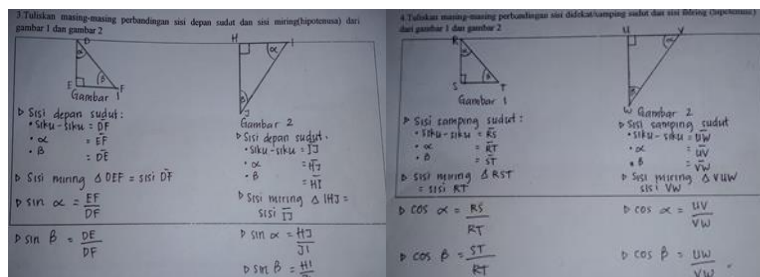 3. Tuliskan masing-masing perbandingan sisi depan sudut dan sisi miring(hipotenusa) dari
gambar 1 dan gambar 2
D
α
E
β
F
Gambar 1
H
I
α
β
J
Gambar 2
▷ Sisi depan sudut:
• Siku-siku = DF
• α = EF
• β = DE
▷ Sisi miring Δ DEF = sisi DF
▷ sin α = EF
DF
▷ sin β = DE
DF
▷ Sisi depan sudut.
• Siku-siku = IJ
• α = HJ
• β = HI
▷ Sisi miring Δ IHJ =
sisi IJ
▷ sin α = HJ
JI
▷ sin β = HI
4. Tuliskan masing-masing perbandingan sisi sudut dan sisi
dari gambar 1 dan gambar 2
R
α
S
β
T
Gambar 1
U
V
α
β
W
Gambar 2
▷ Sisi samping sudut:
• Siku-siku = RS
• α = RT
• β = ST
▷ Sisi miring Δ RST
= sisi RT
▷ cos α = RS
RT
▷ cos β = ST
RT
▷ Sisi samping sudut
• siku-siku = UW
• α = UV
• β = VW
▷ Sisi miring Δ VUW
sisi VW
▷ cos α = UV
VW
▷ cos β = UW
VW